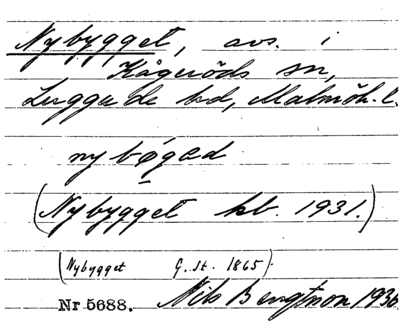 Nybygget, avs. i
Kågeröds sn,
Luggude hd, Malmöh. l.
nybøgad
(Nybygget kb. 1931.)
(Nybygget G. St. 1865)
Nr 5688. Nils Bengtsson 1930